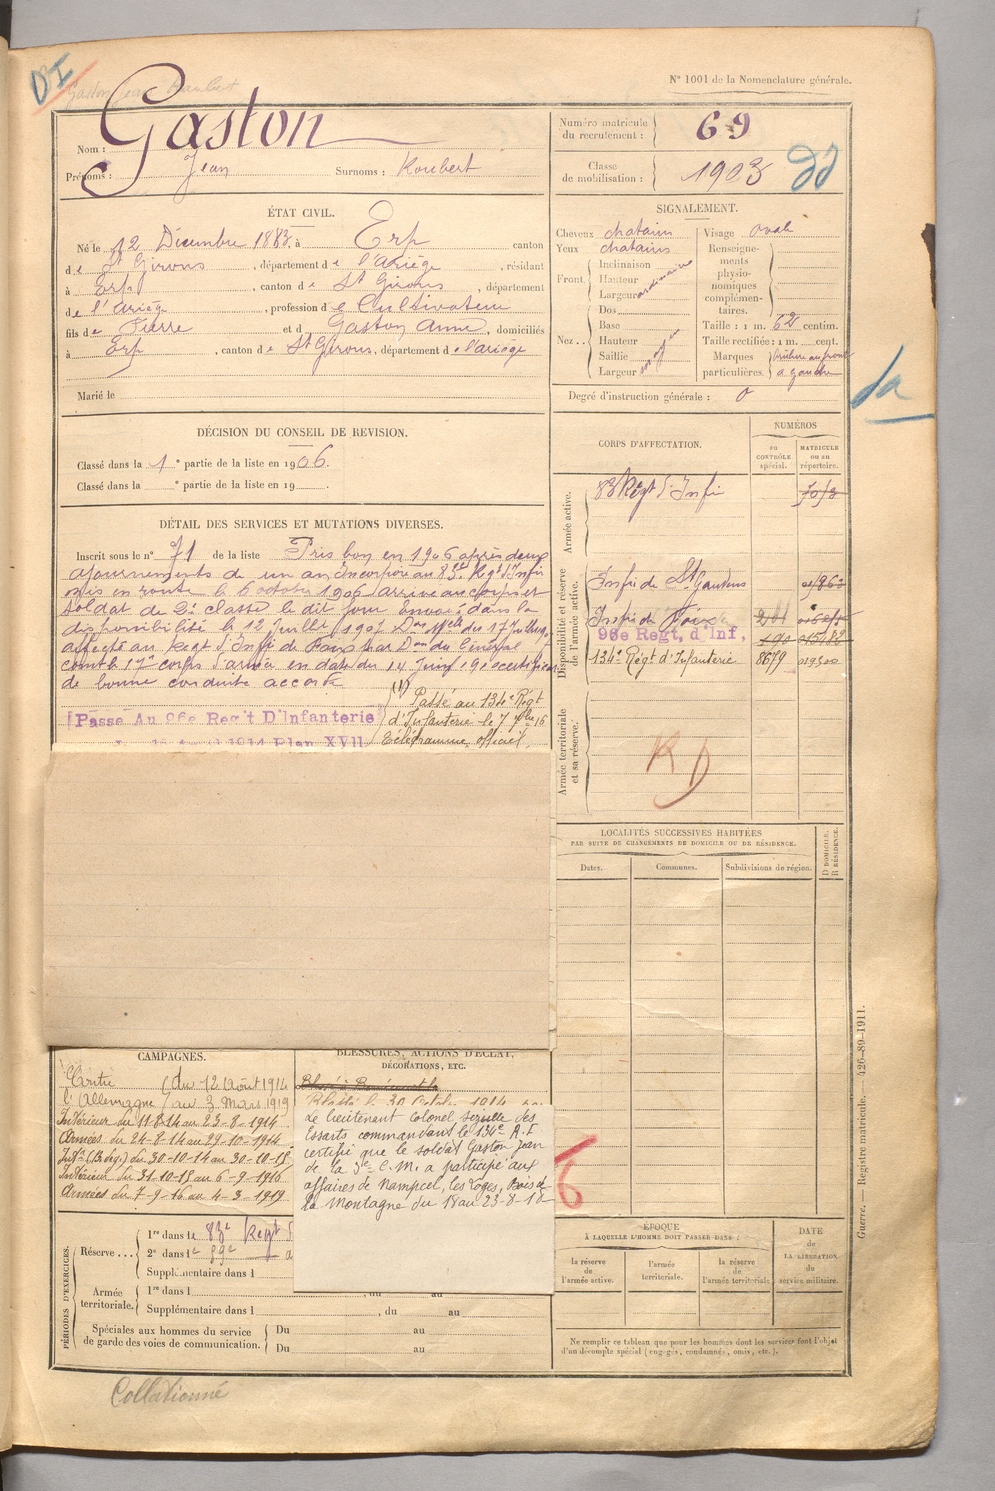 N° 1001 de la Nomenclature générale.
DI
Gaston Jean Roubert
Nom : Gaston
Prénoms : Jean Surnoms : Roubert
Numéro matricule du recrutement : 69
Classe de mobilisation : 1903
ÉTAT CIVIL.
Né le 12 Décembre 1883. à Erp canton
de St Girons, département de l'Ariège, résidant
à Erp, canton de St Girons, département
de l'Ariège, profession de Cultivateur
fils de Pierre et d Gaston Anne, domiciliés
à Erp, canton de St Girons, département de l'Ariège
Marié le
SIGNALEMENT.
Cheveux chatains Visage ovale
Yeux chatains
Front. Inclinaison
Hauteur
Largeur ordinaire
Nez. . Dos
Base
Hauteur
Saillie
Largeur moyen
Renseignements physionomiques complémentaires.
Taille : 1 m. 62 centim.
Taille rectifiée : 1 m. cent.
Marques particulières. brûlure au front
à gauche
Degré d'instruction générale : 0
DÉCISION DU CONSEIL DE REVISION.
Classé dans la 1e partie de la liste en 1906.
Classé dans la e partie de la liste en 19
DÉTAIL DES SERVICES ET MUTATIONS DIVERSES.
Inscrit sous le n° 71 de la liste Pris bon en 1906 après deux
ajournements de un an Incorporé au 83e Regt d'Infie
mis en route le 6 octobre 1906 arrivé au corps et
soldat de 2e classe le dit jour Envoyé dans la
disponibilité le 12 Juillet 1907 Don Mlle du 17 Juillet
affecté au Regt d'Infie de Foix par Don du Général
comt le 17e corps d'armée en date du 14 Juin
de bonne conduite accordé
[Passé Au 96e Reg't D'Infanterie]
1914 Plan XVII
(1) Passé au 134e Régt
d'Infanterie le 7 7bre 16
Télégramme officiel
CORPS D'AFFECTATION.
NUMÉROS
au CONTRÔLE spécial.
MATRICULE ou au répertoire.
Armée active.
83e Regt d'Infie
Disponibilité et réserve de l'armée active.
Infie de St Gaudens
Infie de Foix
96e Regt, d'Inf,
134e Régt d'Infanterie 8679
Armée territoriale et sa réserve.
LOCALITÉS SUCCESSIVES HABITÉES
PAR SUITE DE CHANGEMENTS DE DOMICILE OU DE RÉSIDENCE.
Dates. Communes. Subdivisions de région.
D DOMICILE.
R RÉSIDENCE.
CAMPAGNES.
Contre (du 12 Août 1914
l'Allemagne (au 3 Mars 1919
Intérieur du 11-8-14 au 23-8-1914
Armées du 24-8-14 au 29-10-1914
Intr (B. deg.) du 30-10-14 au 30-10-15
Intérieur du 31-10-15 au 6-9-1916
Armées du 7-9-16 au 4-3-1919
BLESSURES, ACTIONS D'ÉCLAT,
DÉCORATIONS, ETC.
Le lieutenant Colonel des
Essarts commandant le 134e R.I
certifie que le soldat Gaston Jean
de la 3e C.M. a participé aux
affaires de Nampcel, les Loges, Bois de
la Montagne du 18 au 23-8-18
PÉRIODES D'EXERCICES.
Réserve . . . 1re dans le 83e Regt
2e dans le
Supplémentaire dans l
Armée territoriale. 1re dans l , du au
Supplémentaire dans l , du au
Spéciales aux hommes du service de garde des voies de communication. Du au
Du au
ÉPOQUE
À LAQUELLE L'HOMME DOIT PASSER DANS :
la réserve de l'armée active.
l'armée territoriale.
la réserve de l'armée territoriale
DATE de LA LIBÉRATION du service militaire.
Ne remplir ce tableau que pour les hommes dont les services font l'objet
d'un décompte spécial (engagés, condamnés, omis, etc.).
Guerre. — Registre matricule. 426-89-1911.
Collationné